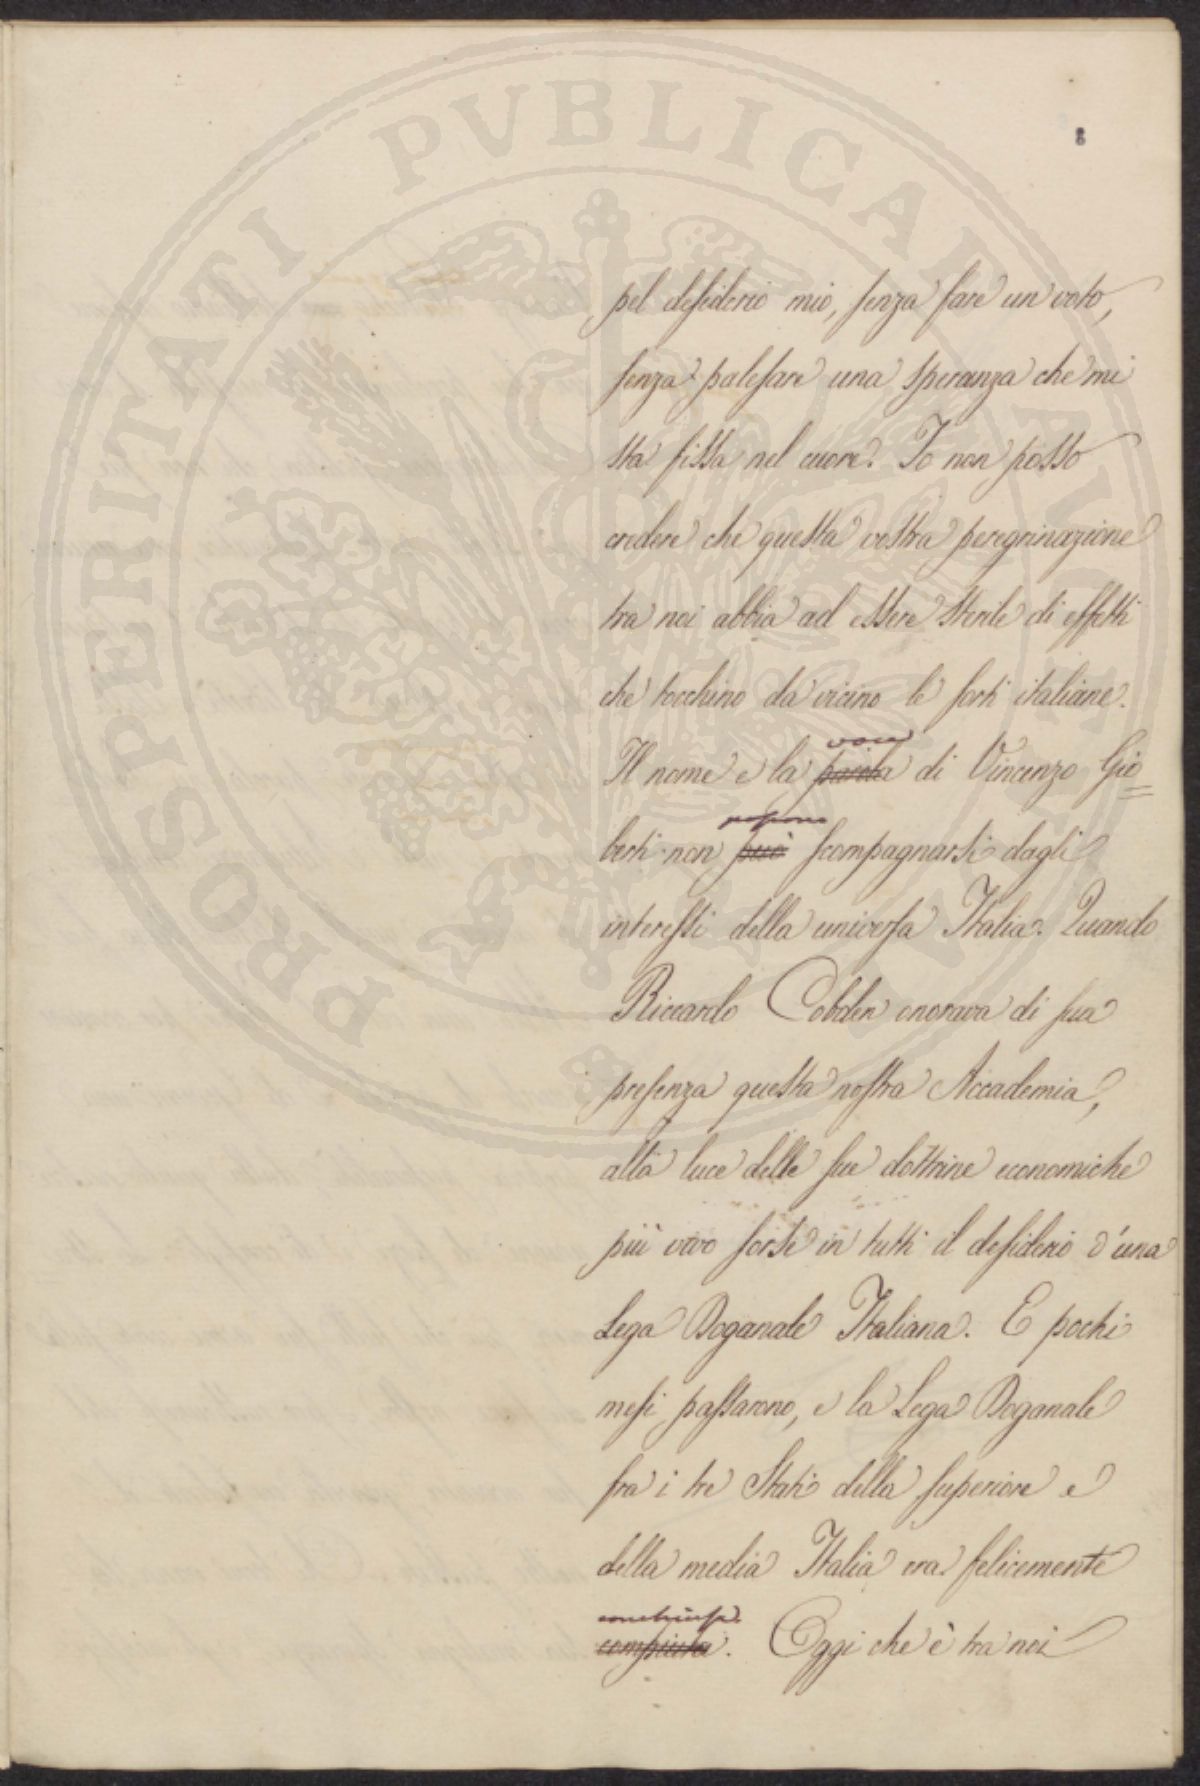 PROSPERITATI PUBLICAE AUGENDAE
pel desiderio mio, senza fare un voto,
senza palesare una speranza che mi
sta fissa nel cuore. Io non posso
credere che questa vostra peregrinazione
tra noi abbia ad essere sterile di effetti
che tocchino da vicino le sorti italiane.
voce
Il nome e la parola di Vincenzo Gio=
possono
berti non può scompagnarsi dagli
interessi della universa Italia. Quando
Riccardo Cobden onorava di sua
presenza questa nostra Accademia,
alla luce delle sue dottrine economiche
più vivo sorse in tutti il desiderio d'una
Lega Doganale Italiana. E pochi
mesi passarono, e la Lega Doganale
fra i tre Stati della superiore e
della media Italia era felicemente
conchiusa.
compiuta. Oggi che è tra noi